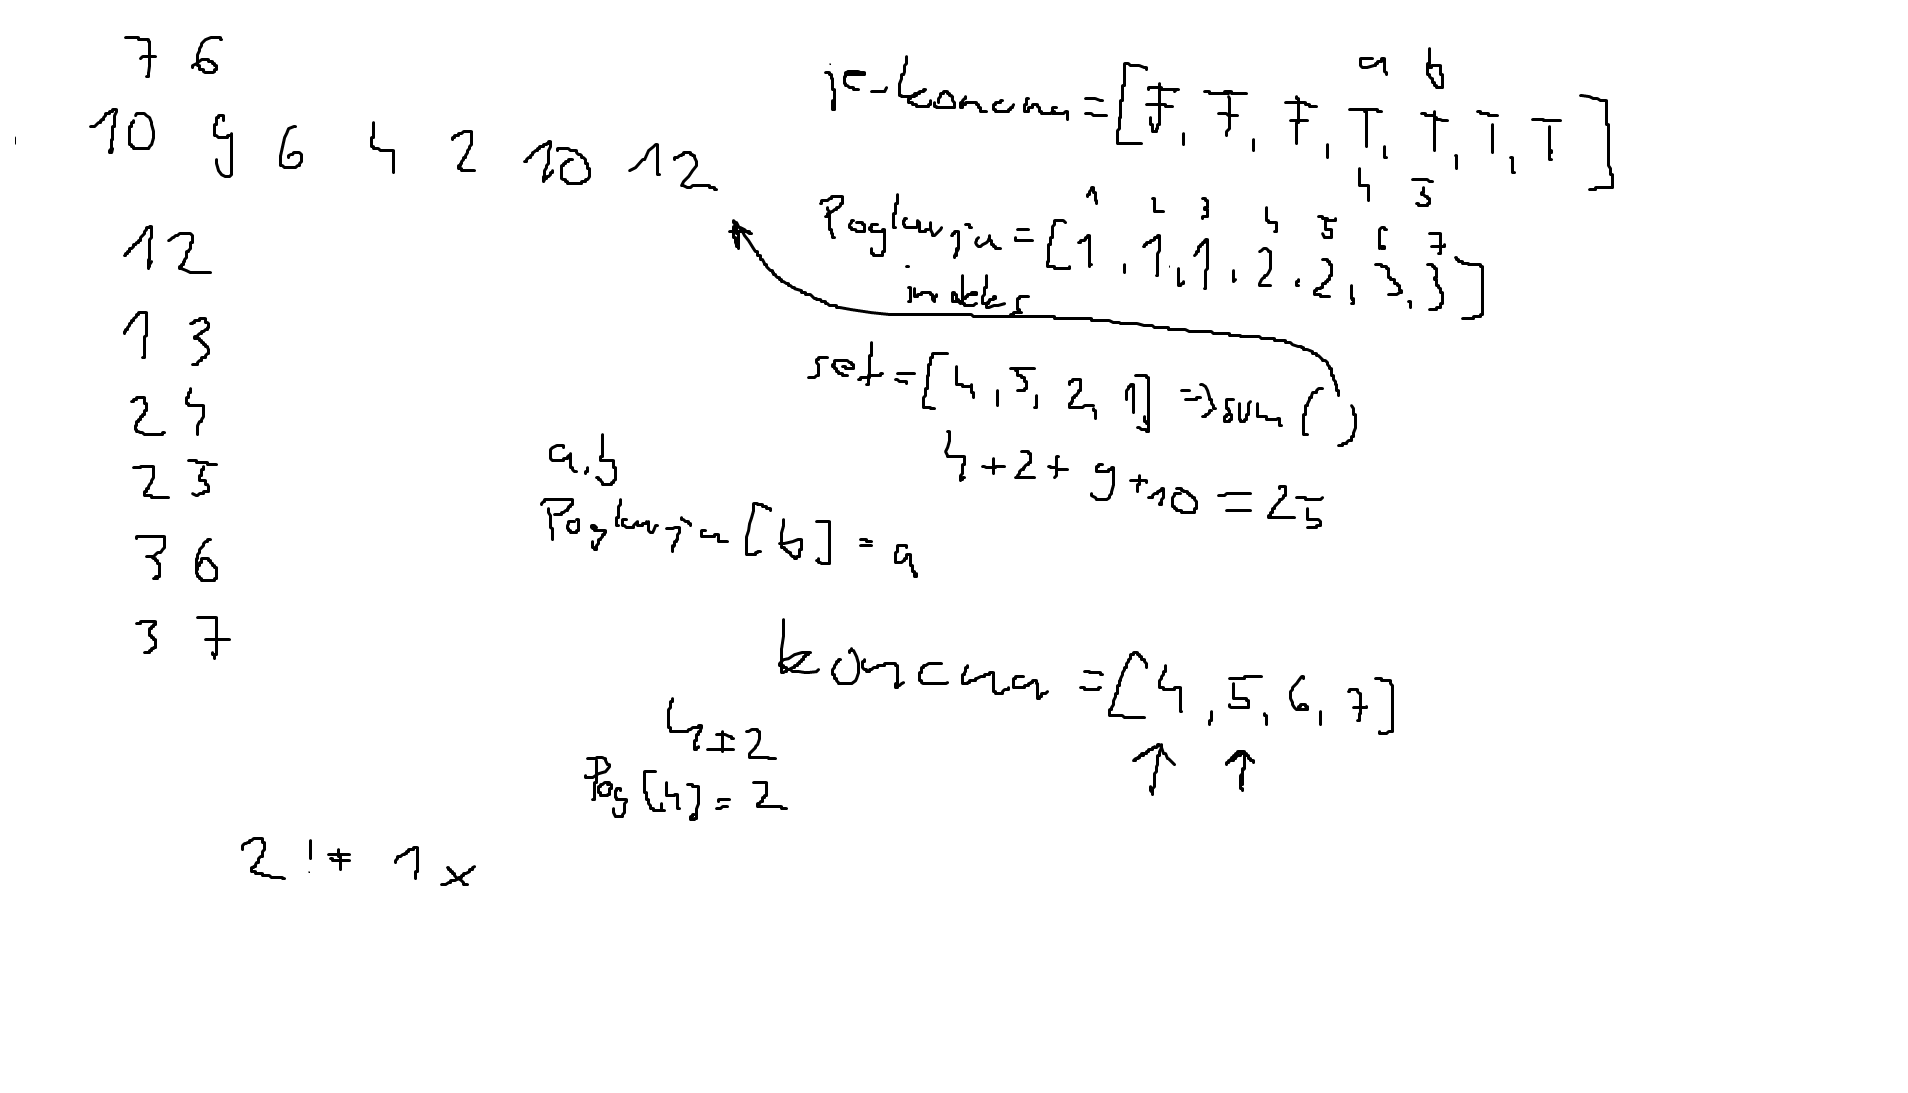 7 6
10 9 6 4 2 10 12
1 2
1 3
2 4
2 5
3 6
3 7
a b
je_koncna = [F, F, F, T, T, T, T]
4 5
1 2 3 4 5 6 7
Poglavja = [1, 1, 1, 2, 2, 3, 3]
indeks
set = [4, 5, 2, 1] => sum ( )
4 + 2 + 9 + 10 = 25
a, b
Poglavja [b] = a
koncna = [4, 5, 6, 7]
Pog [4] = 2
2 != 1 x